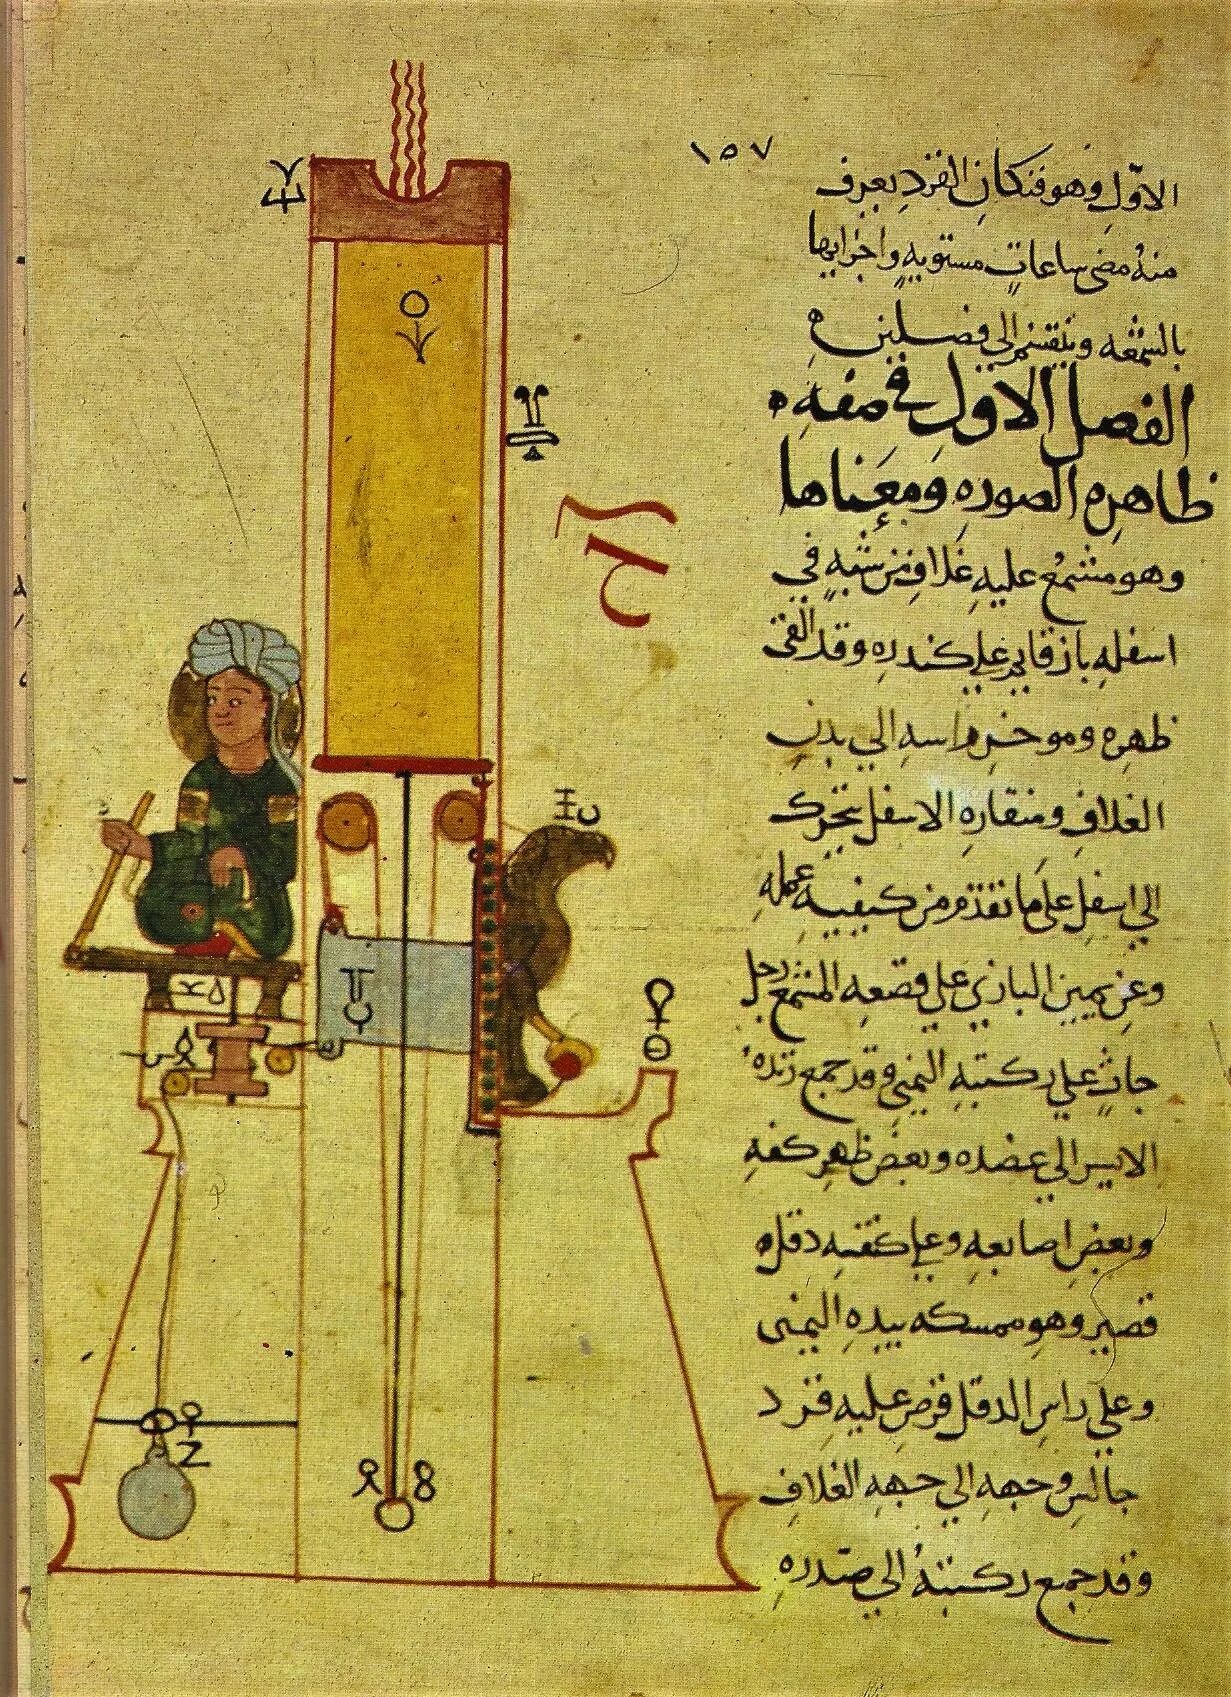 ١٥٧
الاوّل وهو فنكان القرد يعرف
منه مضى ساعات مستويه واجزايها
بالشمعه وينقسم الى فصلين ه
الفصل الاول في صفه
ظاهره الصوره ومعناها
وهو مشمع عليه غلاف من شبه في
اسفله باز قابض على كندره وقد القى
ظهره وموخر راسه الي بدن
الغلاف ومنقاره الاسفل يتحرك
الي اسفل على ما تقدم من كيفيه عمله
وعن يمين البازي على قصعه المشمع رجل
جاث على ركبته اليمنى وقد جمع زنده
الايسر الي عضده وبعض ظهر كفه
وبعض اصابعه وعلى كتفه دقل
قصير وهو ممسكه بيده اليمنى
وعلي راس الدقل قرص عليه قرد
جالس وجهه الي جهه الغلاف
وقد جمع ركبتيه الي صدره